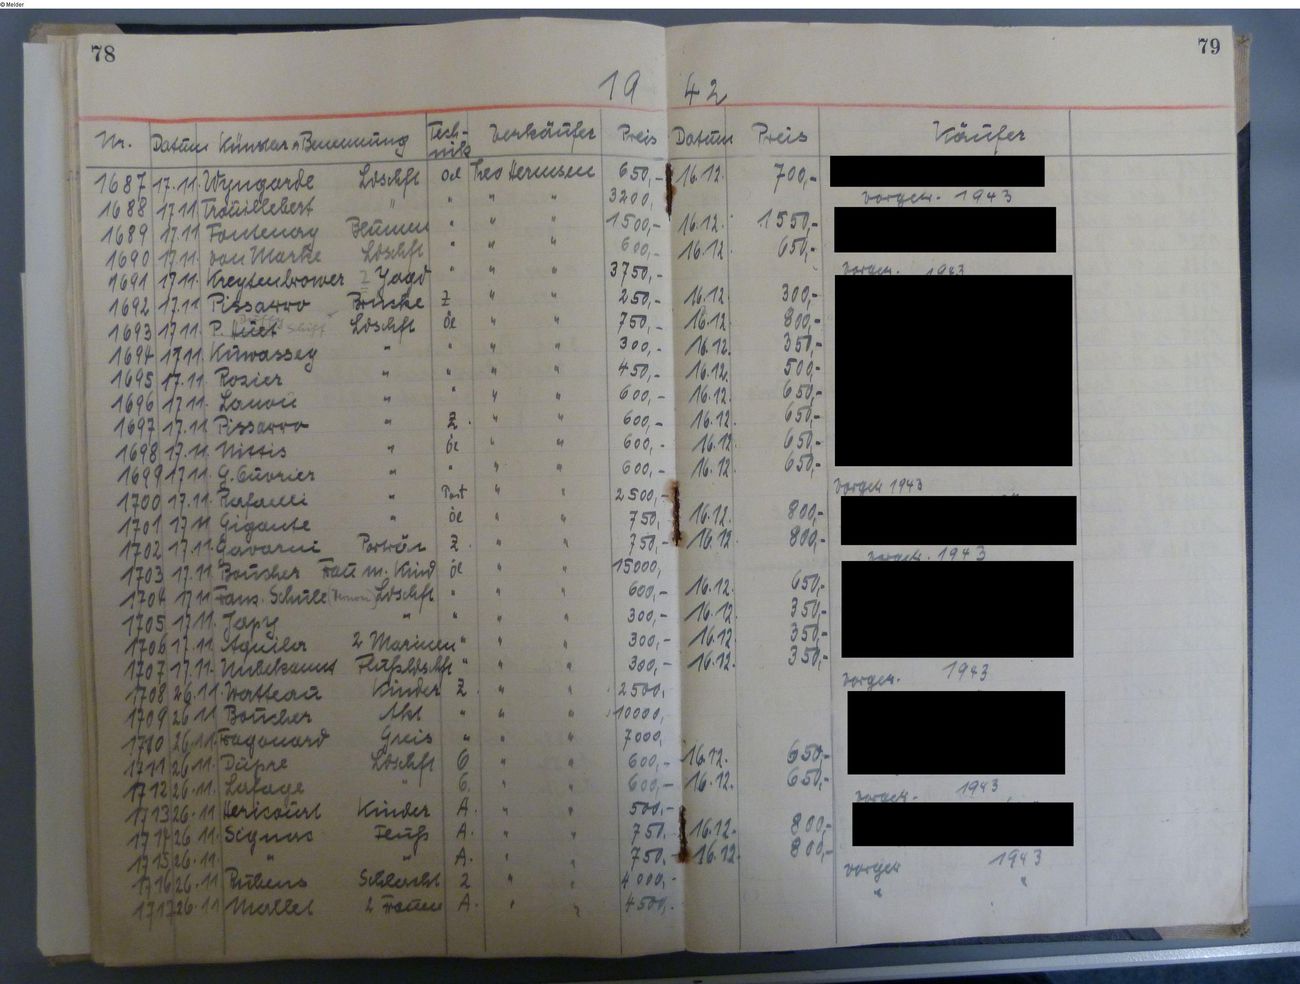 © Melder
78
79
19 42
Nr. Datum Künstler u. Benennung Tech-nik Verkäufer Preis Datum Preis Käufer
1687 17.11. Wyngarde Ldschft Oel Theo Hermsen 650,- 16.12. 700,-
1688 17.11. Trouillebert " " " " 3200,- vorgetr. 1943
1689 17.11. Fontenay Blumen " " " 1500,- 16.12. 1550,-
1690 17.11. van Marke Ldschft " " " 600,- 16.12. 650,-
1691 17.11. Kreytenbrower Z Jagd " " " 3750,- vorgetr. 1943
1692 17.11. Pissarro Brücke Z " " 250,- 16.12. 300,-
1693 17.11. P. Huet Ldschft Öl " " 750,- 16.12. 800,-
1694 17.11. Kuwasseg " " " " 300,- 16.12. 350,-
1695 17.11. Rozier " " " " 450,- 16.12. 500,-
1696 17.11. " " " " 600,- 16.12. 650,-
1697 17.11. Pissarro " Z. " " 600,- 16.12. 650,-
1698 17.11. Nittis " Öl " " 600,- 16.12. 650,-
1699 17.11. G. Cuvrier " " " " 600,- 16.12. 650,-
1700 17.11. Rafaelli " Past " " 2500,- vorgetr. 1943
1701 17.11. Gigante " Öl " " 750,- 16.12. 800,-
1702 17.11. Gavarni Porträt Z. " " 750,- 16.12. 800,-
1703 17.11. Boucher Frau m. Kind Öl " " 15000,- vorgetr. 1943
1704 17.11. Franz. Schule Ldschft " " " 600,- 16.12. 650,-
1705 17.11. Japy " " " " 300,- 16.12. 350,-
1706 17.11. Aguilar 2 Marinen " " " 300,- 16.12. 350,-
1707 17.11. Unbekannt Flußldschft " " " 300,- 16.12. 350,-
1708 26.11. Watteau Kinder Z. " " 2500,- vorgetr. 1943
1709 26.11. Boucher Akt " " " 10000,-
1710 26.11. Fragonard Greis " " " 7000,
1711 26.11. Düpre Ldschft G " " 600,- 16.12. 650,-
1712 26.11. Lafage " G. " " 600,- 16.12. 650,-
1713 26.11. Hericourt Kinder A. " " 500,- vorgetr. 1943
1714 26.11. Signac A. " " 750,- 16.12. 800,-
1715 26.11. " " A. " " 750,- 16.12. 800,-
1716 26.11. Rubens Schlacht Z " " 4000,- vorgetr 1943
1717 26.11. Mallet 2 Frauen A. " " 4500,- " "